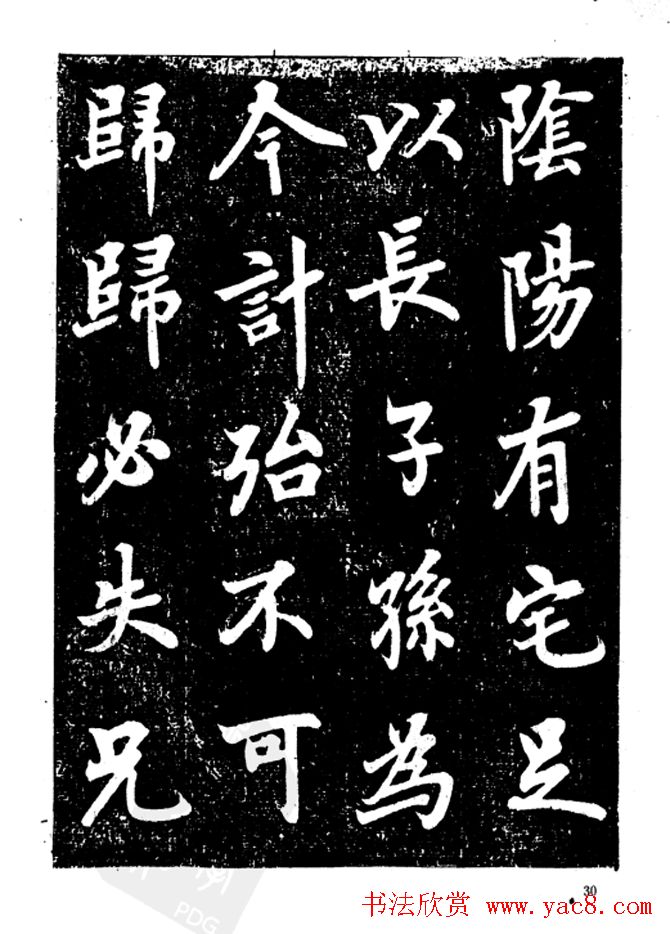 陰陽有宅足
以長子孫為
今計殆不可
歸歸必失兄
30
书法欣赏 www.yac8.com
PDG